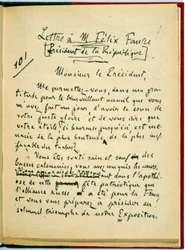 Lettre à M. Félix Faure
Président de la République
101
Monsieur le Président,
Me permettez-vous, dans ma gra-
titude pour le bienveillant accueil que vous
m'avez fait un jour, d'avoir le souci de
votre juste gloire et de vous dire que
votre étoile, si heureuse jusqu'ici, est me-
nacée de la plus honteuse, de la plus inef-
façable des taches?
Vous êtes sorti sain et sauf des
basses calomnies, vous avez conquis les cœurs.
Vous apparaissez dans l'apothé-
ose de cette fête patriotique que
l'alliance russe a été pour la France
et vous vous préparez à présider au
solennel triomphe de notre Exposition